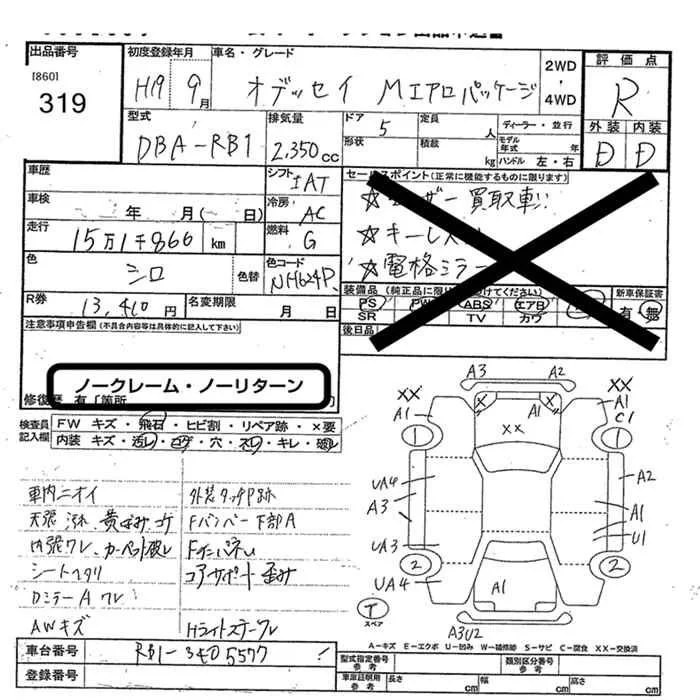 出品番号
[860]
319
初度登録年月
H19 9月
車名・グレード
オデッセイ Mエアロパッケージ
2WD
・
4WD
評価点
R
外装 内装
D D
型式
DBA-RB1
排気量
2,350cc
ドア 5
形状
定員 人
積載 kg
ディーラー・並行
モデル年式 年
ハンドル 左・右
車歴
シフト
IAT
車検
年 月( 日)
冷房
AC
走行
15万1千866 km
燃料
G
色
シロ
色替
色コード
NH624P
R券
13,410 円
名変期限
月 日
セールスポイント(正常に機能するものに限ります)
☆ユーザー買取車!!
☆キーレス
☆電格ミラー
装備品(純正品に限り
けてください)
新車保証書
PS PW ABS エアB
有 無
SR TV カワ
後日品
注意事項申告欄(不具合内容等は具体的に記入して下さい)
ノークレーム・ノーリターン
修復歴 有「箇所
検査員
記入欄
FW キズ・飛石・ヒビ割・リペア跡・×要
内装 キズ・汚レ・コゲ・穴・スレ・キレ・破レ
車内ニオイ
外装タッチP跡
Fバンパー下部A
シートヘタリ
コアサポート歪み
AWキズ
A3 A2
XX XX
A1 A1
C1
X X
A1
XX
1 1
UA4 A2
A3 A1
U1
UA3
2 2
UA4
A1
T
スペア
A3U2
A=キズ E=エクボ U=凹み W=補修跡 S=サビ C=腐食 XX=交換済
車台番号
RB1-3405577
登録番号
型式指定番号
参考
類別区分番号
参考
車庫証明用
参考
長さ cm 幅 cm 高さ cm